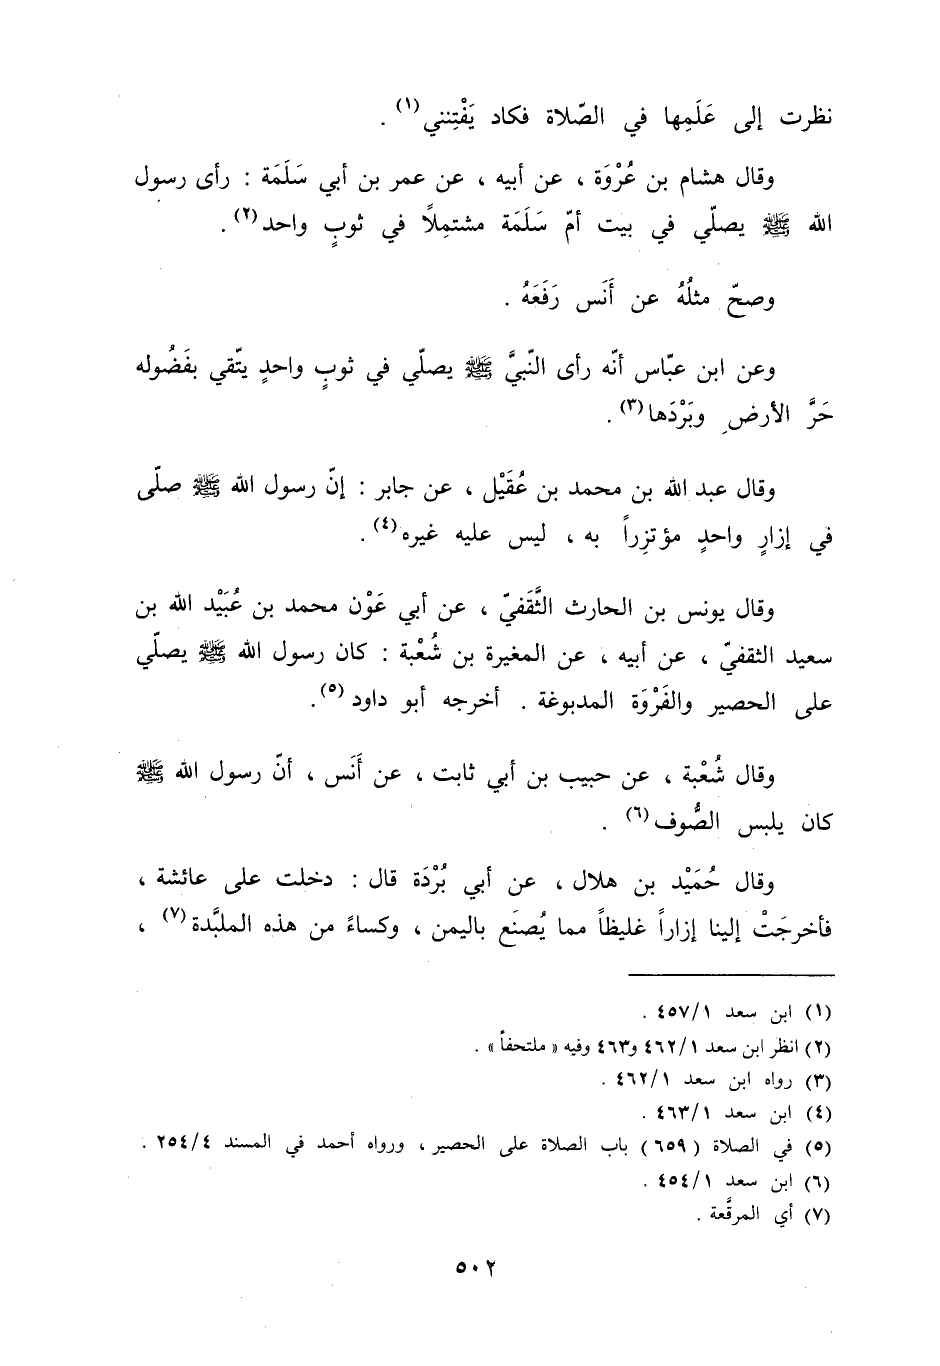 نظرت إلى عَلَمِها في الصّلاة فكاد يَفْتِنني(١) .
وقال هشام بن عُرْوَة ، عن أبيه ، عن عمر بن أبي سَلَمَة : رأى رسول
الله ﷺ يصلّي في بيت أمّ سَلَمَة مشتمِلاً في ثوبٍ واحد(٢) .
وصحّ مثلُهُ عن أَنَس رَفَعَهُ .
وعن ابن عبّاس أنّه رأى النّبيَّ ﷺ يصلّي في ثوبٍ واحدٍ يتّقي بفَضُوله
حَرَّ الأرضِ وبَرْدَها(٣) .
وقال عبد الله بن محمد بن عُقَيْل ، عن جابر : إنّ رسول الله ﷺ صلّى
في إزارٍ واحدٍ مؤتزِراً به ، ليس عليه غيره(٤) .
وقال يونس بن الحارث الثَّقَفيّ ، عن أبي عَوْن محمد بن عُبَيْد الله بن
سعيد الثقفيّ ، عن أبيه ، عن المغيرة بن شُعْبة : كان رسول الله ﷺ يصلّي
على الحصير والفَرْوَة المدبوغة . أخرجه أبو داود(٥) .
وقال شُعْبة ، عن حبيب بن أبي ثابت ، عن أَنَس ، أنّ رسول الله ﷺ
كان يلبس الصُّوف(٦) .
وقال حُمَيْد بن هلال ، عن أبي بُرْدَة قال : دخلت على عائشة ،
فأخرجَتْ إلينا إزاراً غليظاً مما يُصنَع باليمن ، وكساءً من هذه الملبَّدة(٧) ،
(١) ابن سعد ٤٥٧/١ .
(٢) انظر ابن سعد ٤٦٢/١ و٤٦٣ وفيه « ملتحفاً » .
(٣) رواه ابن سعد ٤٦٢/١ .
(٤) ابن سعد ٤٦٣/١ .
(٥) في الصلاة (٦٥٩) باب الصلاة على الحصير ، ورواه أحمد في المسند ٢٥٤/٤ .
(٦) ابن سعد ٤٥٤/١ .
(٧) أي المرقَّعة .
٥٠٢